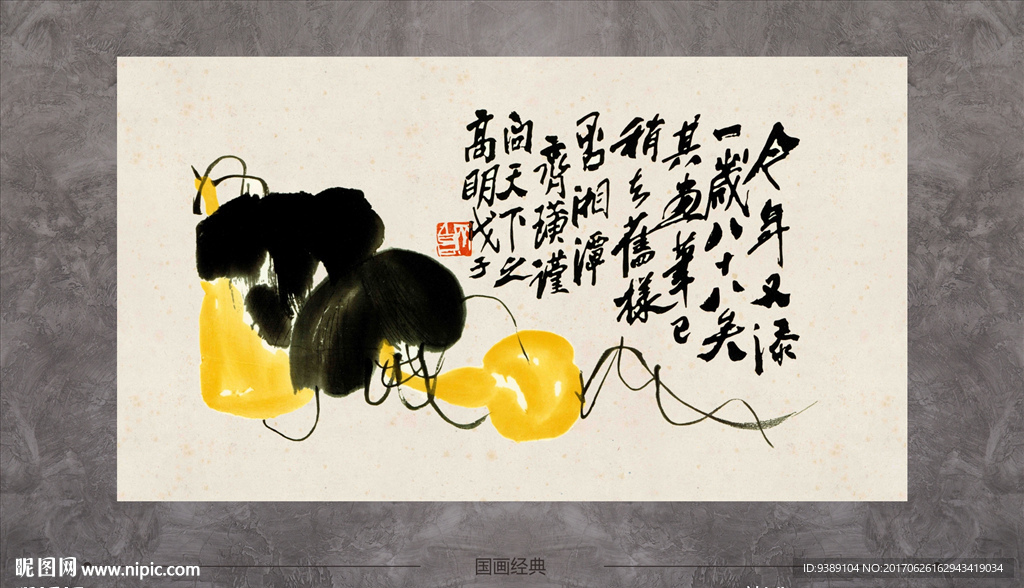 今年又添
一歲八十八矣
其畫筆已
稍去舊樣
否湘潭
齊璜謹
问天下之
高明戊子
昵图网 www.nipic.com
国画经典
ID:9389104 NO:20170626162943419034